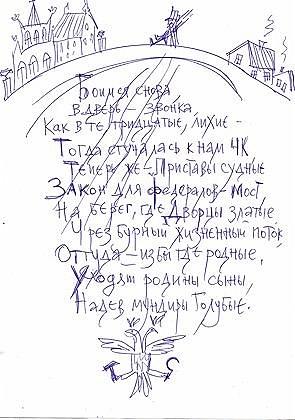 Боимся снова
в дверь – звонка,
Как в те тридцатые, лихие –
Тогда стучалась к нам ЧК
Теперь же – Приставы судные
Закон для федералов – Мост,
На берег, где Дворцы златые
Чрез бурный жизненный поток
Оттуда – избы где родные,
Уходят родины сыны,
Надев мундиры Голубые.